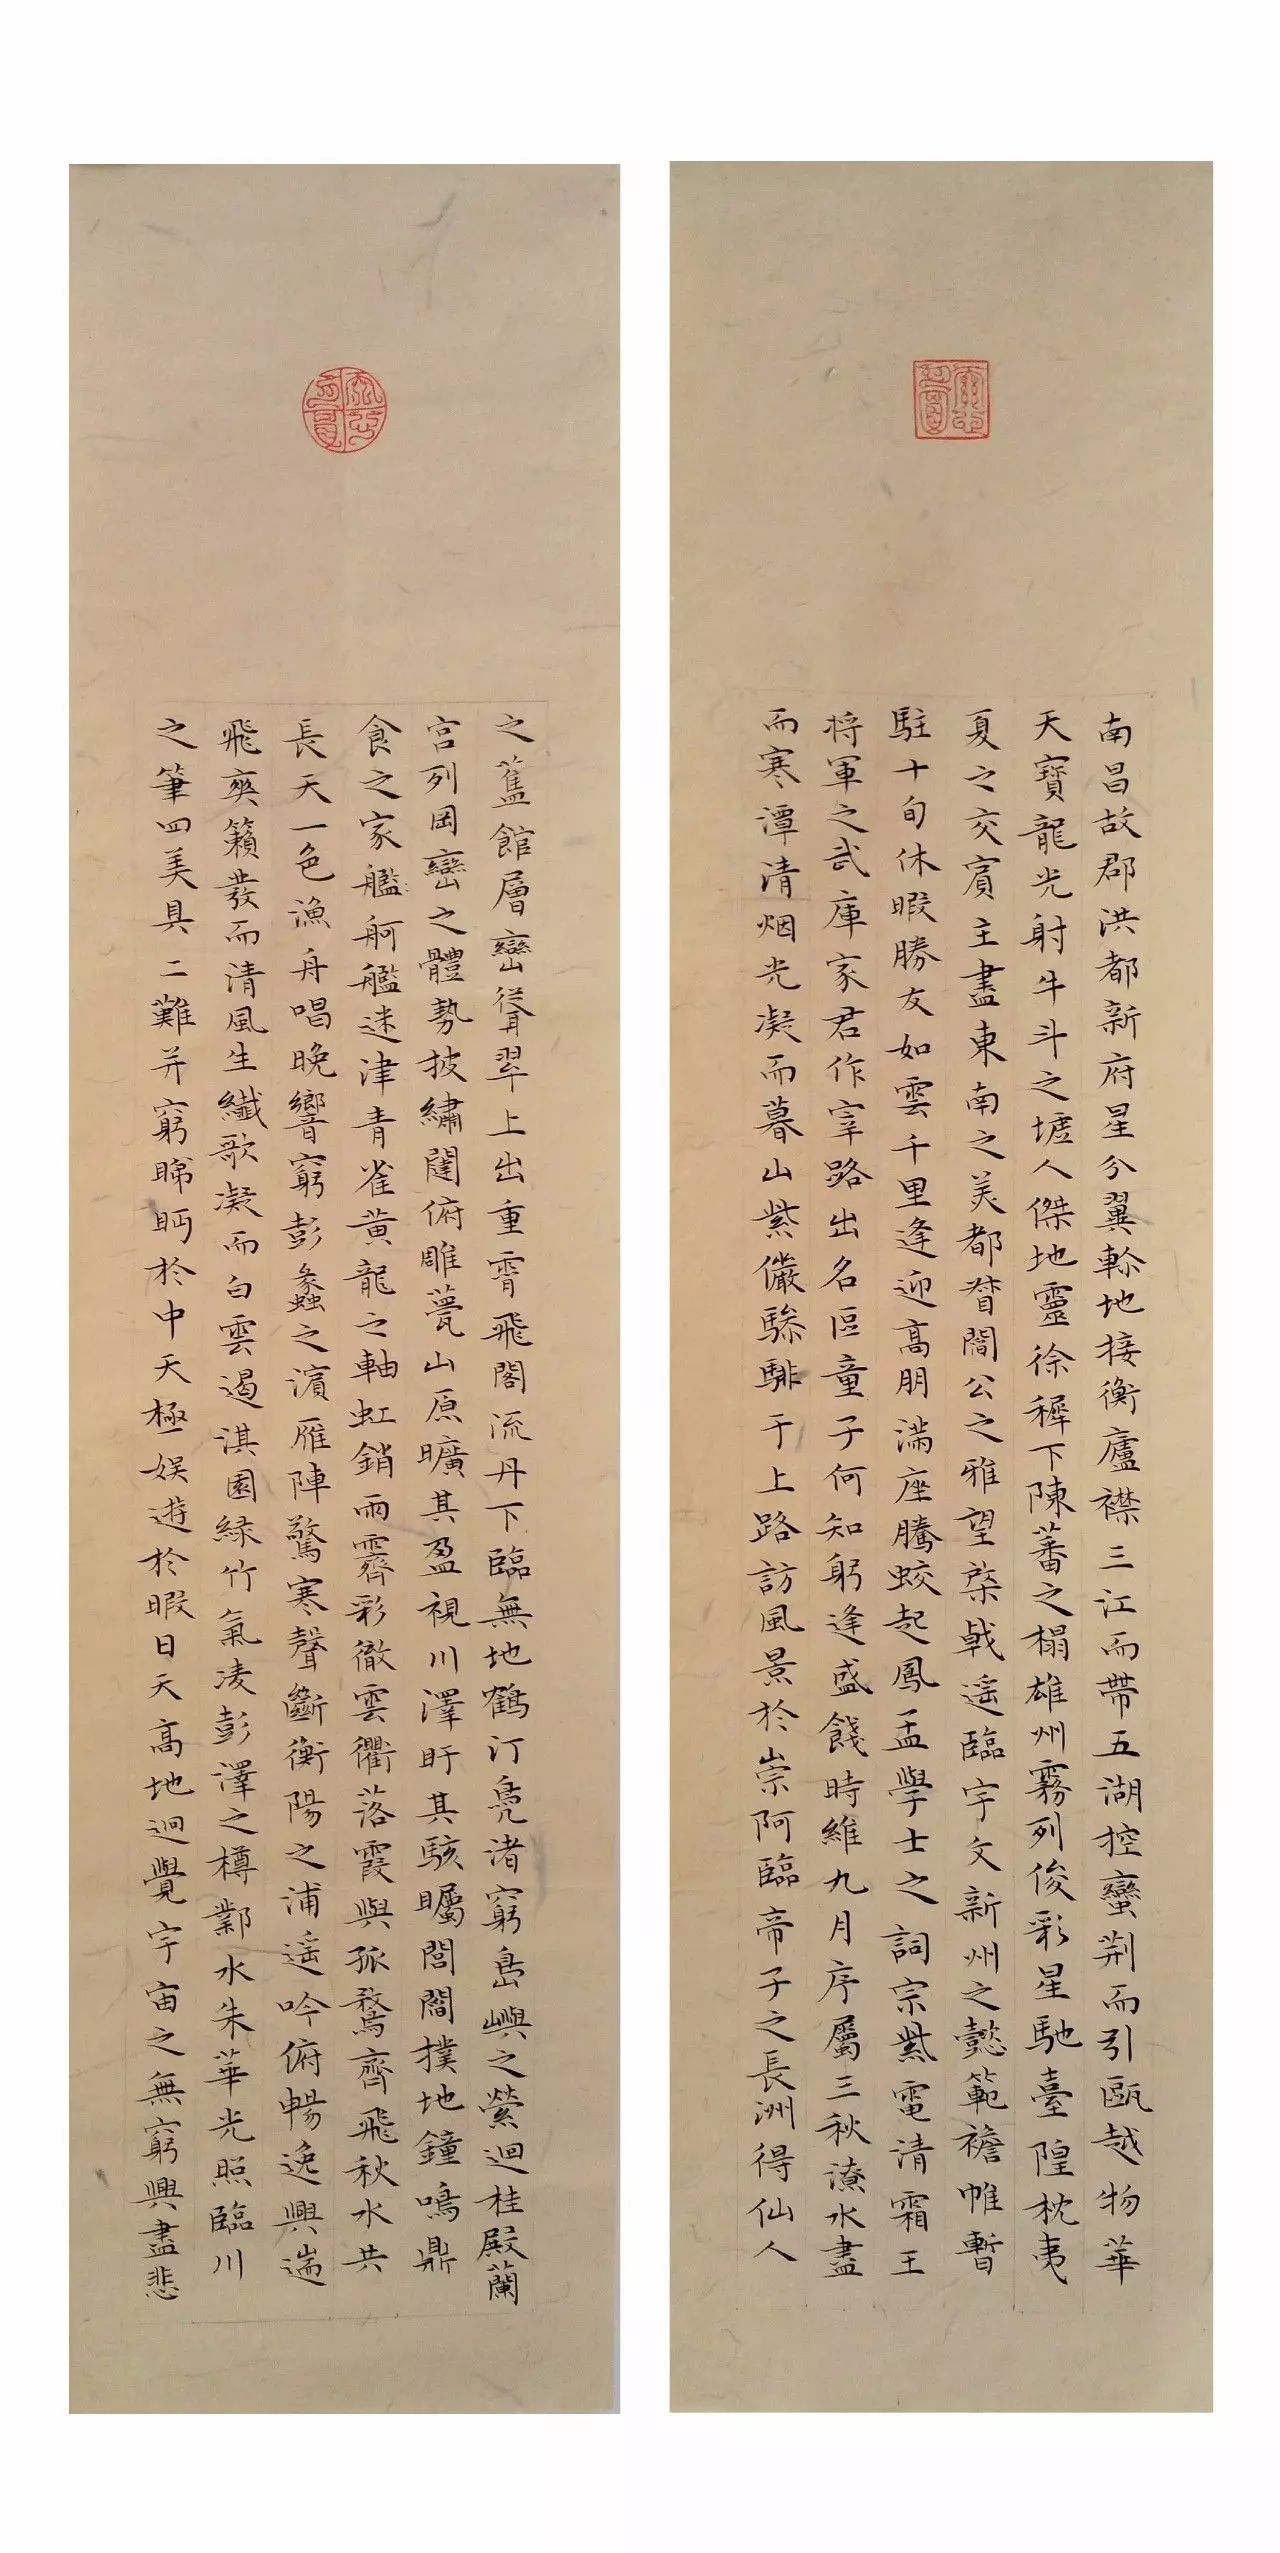 南昌故郡洪都新府星分翼軫地接衡廬襟三江而帶五湖控蠻荆而引甌越物華
天寶龍光射牛斗之墟人傑地靈徐穉下陳蕃之榻雄州霧列俊彩星馳臺隍枕夷
夏之交賓主盡東南之美都督閻公之雅望棨戟遥臨宇文新州之懿範襜帷暫
駐十旬休暇勝友如雲千里逢迎高朋滿座騰蛟起鳳孟學士之詞宗紫電清霜王
將軍之武庫家君作宰路出名區童子何知躬逢盛餞時維九月序屬三秋潦水盡
而寒潭清烟光凝而暮山紫儼驂騑于上路訪風景於崇阿臨帝子之長洲得仙人
之舊館層巒聳翠上出重霄飛閣流丹下臨無地鶴汀鳧渚窮島嶼之縈迴桂殿蘭
宫列岡巒之體勢披繡闥俯雕甍山原曠其盈視川澤盱其駭矚閭閻撲地鐘鳴鼎
食之家艦舸艦迷津青雀黄龍之軸虹銷雨霽彩徹雲衢落霞與孤鶩齊飛秋水共
長天一色漁舟唱晚響窮彭蠡之濱雁陣驚寒聲斷衡陽之浦遥吟俯暢逸興遄
飛爽籟發而清風生纖歌凝而白雲遏淇園緑竹氣凌彭澤之樽鄴水朱華光照臨川
之筆四美具二難并窮睇眄於中天極娱遊於暇日天高地迥覺宇宙之無窮興盡悲